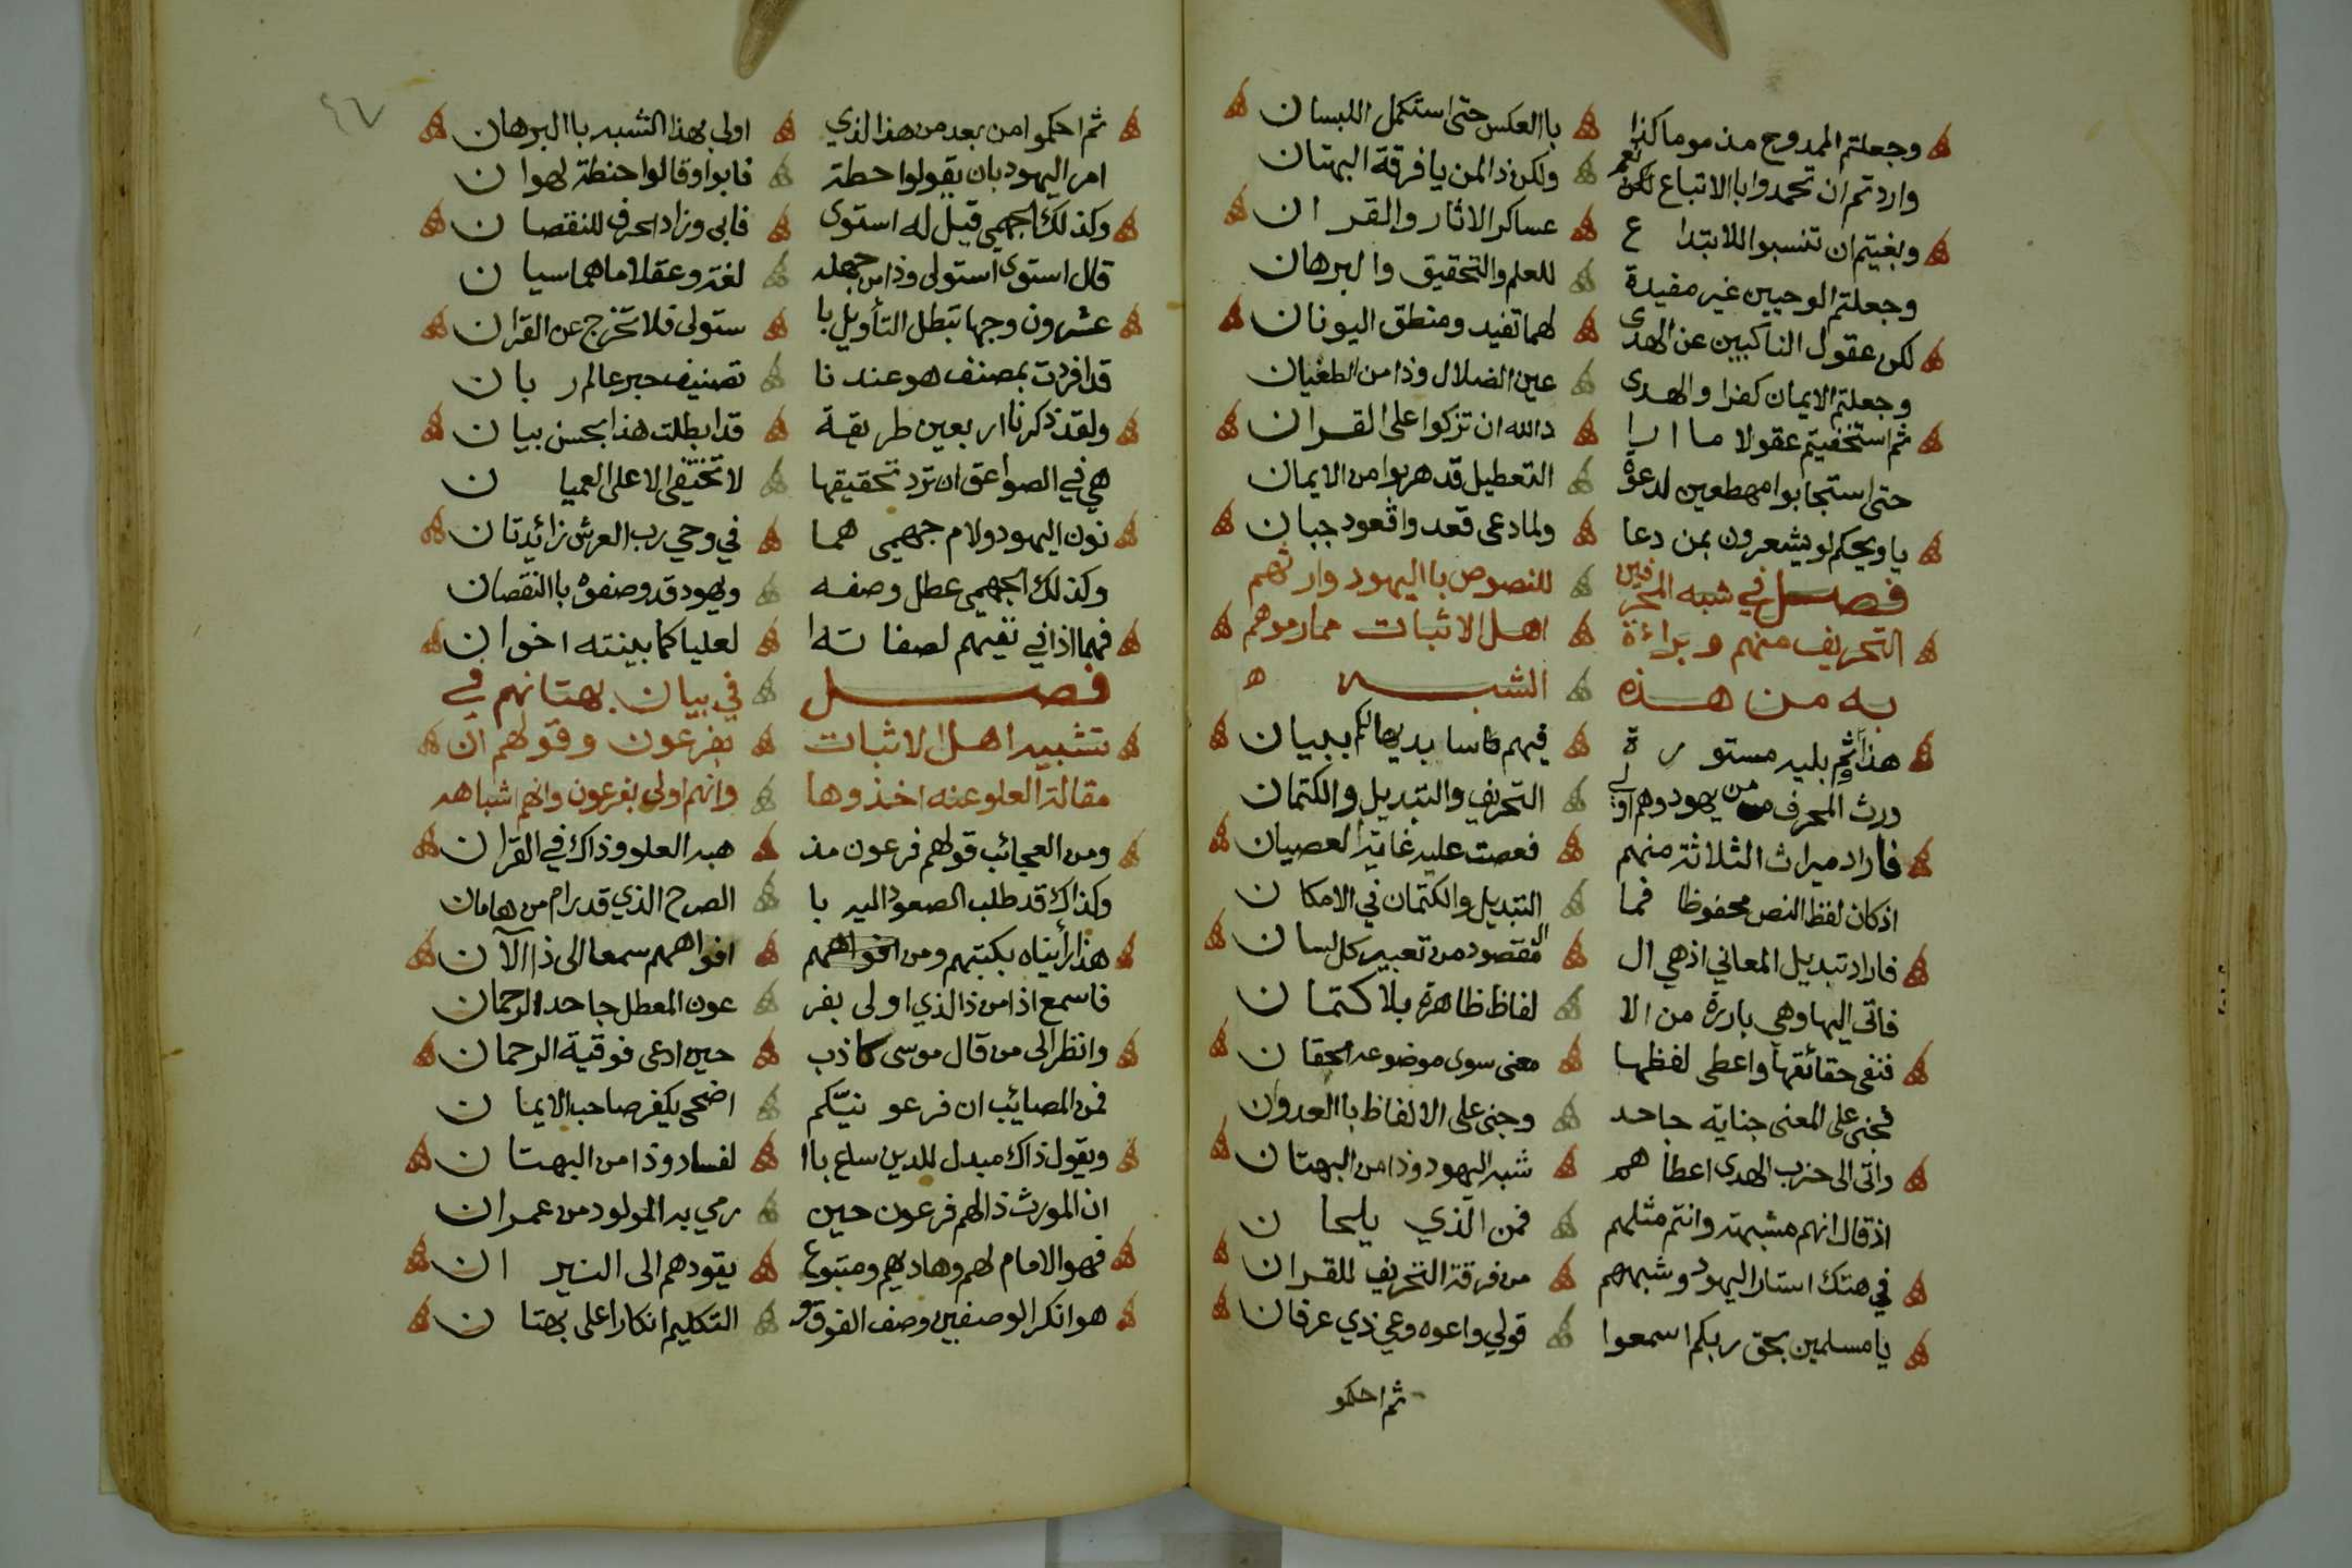 وجعلتم الممدوح مذموما كذا باالعكس حتى استكمل اللبسان
واردتم ان تحمدوا باالاتباع نعم لكن ولكن ذالمن يا فرقة البهتان
وبغيتم ان تنسبوا للابتداع عساكر الاثار والقران
وجعلتم الوحيين غير مفيدة للعلم والتحقيق والبرهان
لكن عقول الناكبين عن الهدى لهما تفيد ومنطق اليونان
وجعلتم الايمان كفرا والهدى عين الضلال وذا من الطغيان
ثم استخفيتم عقولا ما ارا دالله ان تزكوا على القران
حتى استجابوا مهطعين لدعوة التعطيل قد هربوا من الايمان
يا ويحكم لو يشعرون بمن دعا ولما دعى قعدوا قعود جبان
فصل في شبه المحرفين للنصوص باليهود وارثهم
التحريف منهم وبراءة اهل الاثبات مما رموهم
به من هذه الشبه ه
هذا وثم بلية مستورة فيهم فاسا بديها لكم ببيان
ورث المحرف من يهود وهم اولي التحريف والتبديل والكتمان
فاراد ميراث الثلاثة منهم فعصت عليه غاية العصيان
اذ كان لفظ النص محفوظا فما التبديل والكتمان في الامكان
فاراد تبديل المعاني اذ هي ال المقصود من تعبير كل لسان
فاتى اليها وهي بارزة من الا لفاظ ظاهرة بلا كتمان
فنفى حقائقها واعطى لفظها معنى سوى موضوعه الحقان
فجنى على المعنى جناية جاحد وجنى على الالفاظ باالعدوان
واتى الى حزب الهدى اعطاهم شبه اليهود وذا من البهتان
اذ قال انهم مشبهة وانتم مثلهم فمن الذي يلحان
في هتك استار اليهود وشبههم من فرقة التحريف للقران
يا مسلمين بحق ربكم اسمعوا قولي واعوه وعي ذي عرفان
ثم احكمو
٤٧
ثم احكموا من بعد من هذا الذي اولى بهذا الشبه باالبرهان
امر اليهود بان يقولوا حطة فابوا وقالوا حنطة لهوان
وكذلك الجهمي قيل له استوى فابى وزاد الحرف للنقصان
قال استوى استولى وذا من جهله لغة وعقلا ما هما سيان
عشرون وجها تبطل التأويل با ستولى فلا تخرج عن القران
قد افردت بمصنف هو عندنا تصنيف حبر عالم ربان
ولقد ذكرنا اربعين طريقة قد ابطلت هذا بحسن بيان
هي في الصواعق ان ترد تحقيقها لا تختفى الا على العميان
نون اليهود ولام جهمي هما في وحي رب العرش زائدتان
وكذلك الجهمي عطل وصفه ويهود قد وصفوه باالنقصان
فهما اذا في نفيهم لصفاته ا لعليا كما بينته اخوان
فصل في بيان بهتانهم في
تشبيه اهل الاثبات بفرعون وقولهم ان
مقالة العلو عنه اخذوها وانهم اولى بفرعون وانهم اشباهه
ومن العجائب قولهم فرعون مذ هبه العلو وذاك في القران
وكذاك قد طلب الصعود اليه با الصرح الذي قد رام من هامان
هذا رأيناه بكتبهم ومن افواههم افواههم سمعا الى ذا الآن
فاسمع اذا من ذا الذي اولى بفر عون المعطل جاحد الرحمان
وانظر الى من قال موسى كاذب حين ادعى فوقية الرحمان
فمن المصائب ان فرعونيّكم اضحى يكفر صاحب الايمان
ويقول ذاك مبدل للدين ساع باا لفساد وذا من البهتان
ان المورث ذا لهم فرعون حين رمي به المولود من عمران
فهو الامام لهم وهاديهم ومتبوع يقودهم الى النيران
هو انكر الوصفين وصف الفوق و التكليم انكارا على بهتان